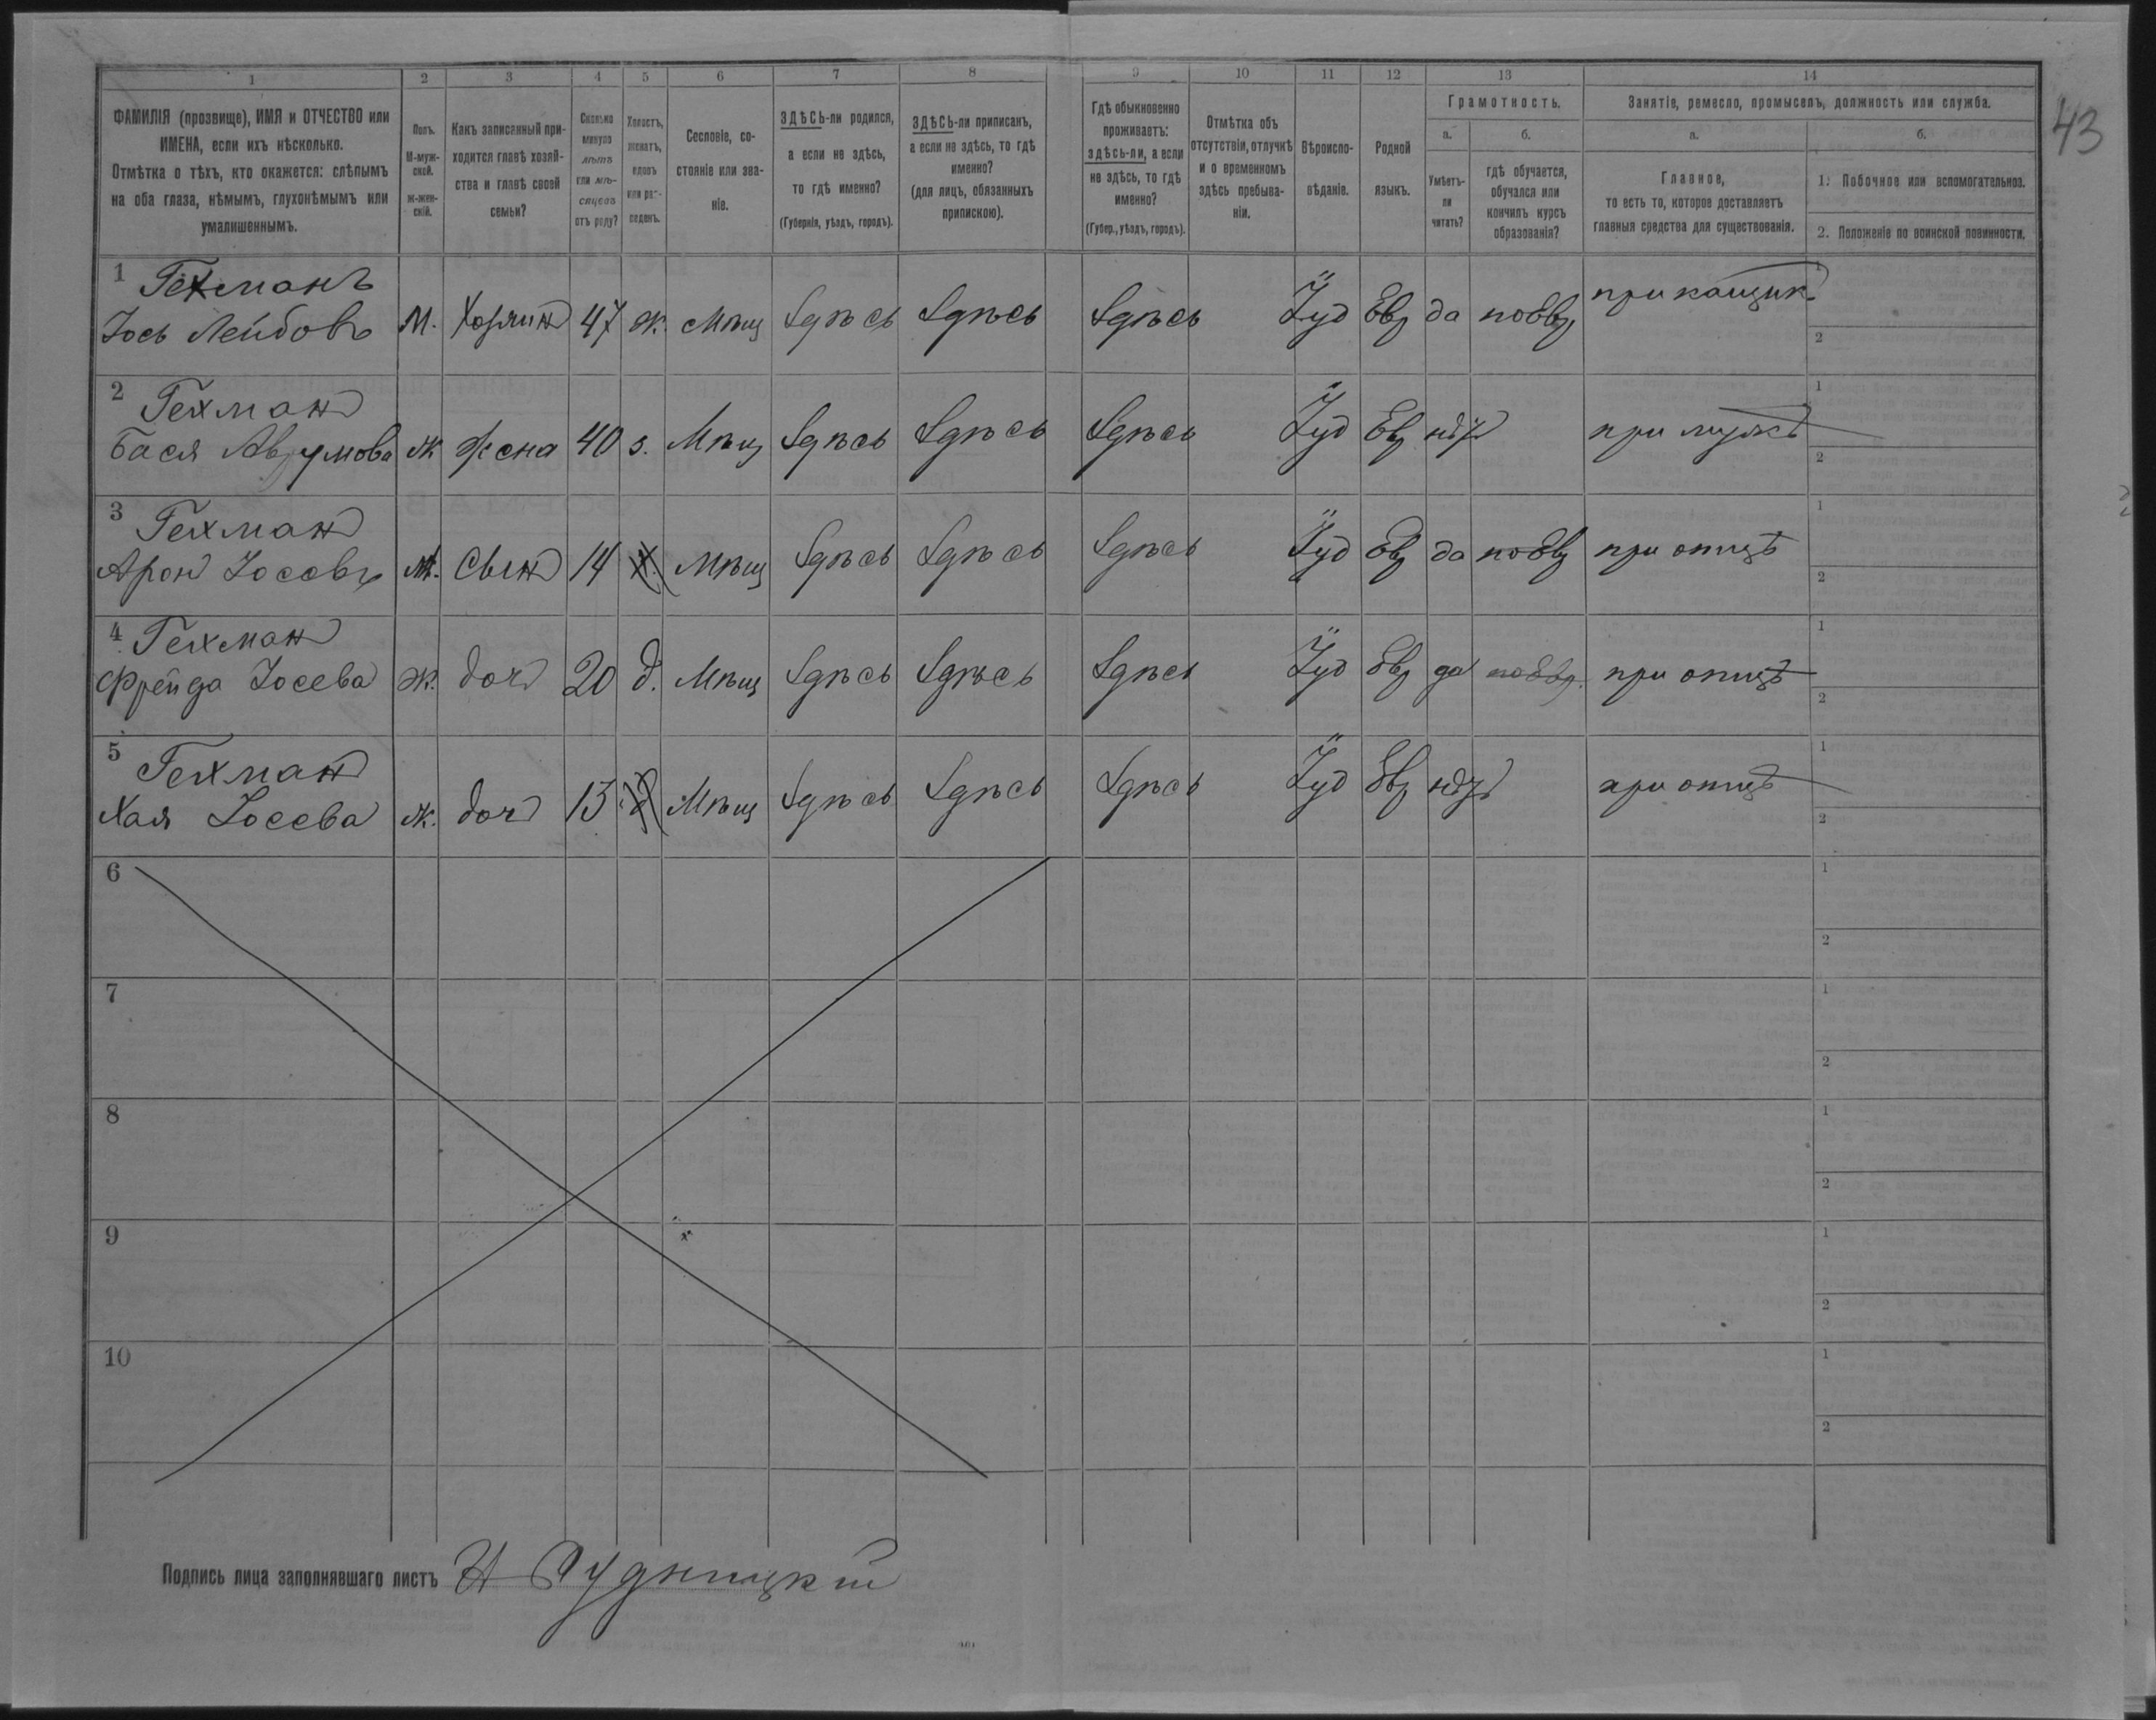 43
1 2 3 4 5 6 7 8 9 10 11 12 13 14
ФАМИЛІЯ (прозвище), ИМЯ и ОТЧЕСТВО или
ИМЕНА, если ихъ нѣсколько.
Отмѣтка о тѣхъ, кто окажется: слѣпымъ
на оба глаза, нѣмымъ, глухонѣмымъ или
умалишеннымъ.
Полъ.
М-муж-
ской.
Ж-жен-
скій.
Какъ записанный при-
ходится главѣ хозяй-
ства и главѣ своей
семьи?
Сколько
минуло
лѣтъ
или мѣ-
сяцевъ
отъ роду?
Холостъ,
женатъ,
вдовъ
или раз-
веденъ.
Сословіе, со-
стояніе или зва-
ніе.
ЗДѢСЬ-ли родился,
а если не здѣсь,
то гдѣ именно?
(Губернія, уѣздъ, городъ).
ЗДѢСЬ-ли приписанъ,
а если не здѣсь, то гдѣ
именно?
(для лицъ, обязанныхъ
припискою).
Гдѣ обыкновенно
проживаетъ:
здѣсь-ли, а если
не здѣсь, то гдѣ
именно?
(Губер., уѣздъ, городъ).
Отмѣтка объ
отсутствіи, отлучкѣ
и о временномъ
здѣсь пребыва-
ніи.
Вѣроиспо-
вѣданіе.
Родной
языкъ.
Грамотность.
а.
Умѣетъ-
ли
читать?
б.
гдѣ обучается,
обучался или
кончилъ курсъ
образованія?
Занятіе, ремесло, промыселъ, должность или служба.
а.
Главное,
то есть то, которое доставляетъ
главныя средства для существованія.
б.
1. Побочное или вспомогательное.
2. Положеніе по воинской повинности.
1 Гехманъ 1
Іось Лейбовъ М. Хозяинъ 47 ж. Мѣщ Здѣсь Здѣсь Здѣсь Іуд Евр да по Евр прикащик. 2
2 Гехман 1
Бася Аврумова Ж жена 40 з. Мѣщ Здѣсь Здѣсь Здѣсь Іуд Ев нѣт при мужѣ 2
3 Гехман 1
Арон Іосевъ М. сын 14 х. Мѣщ Здѣсь Здѣсь Здѣсь Іуд Евр да по Евр при отцѣ 2
4 Гехман 1
Фрейда Іосева ж. доч 20 д. Мѣщ Здѣсь Здѣсь Здѣсь Іуд Евр да по Евр. при отцѣ 2
5 Гехман 1
Хая Іосева ж. доч 13 д Мѣщ Здѣсь Здѣсь Здѣсь Іуд Евр нѣт при отцѣ 2
6 1
2
7 1
2
8 1
2
9 1
2
10 1
2
Подпись лица заполнявшаго листъ Н Рудницкій